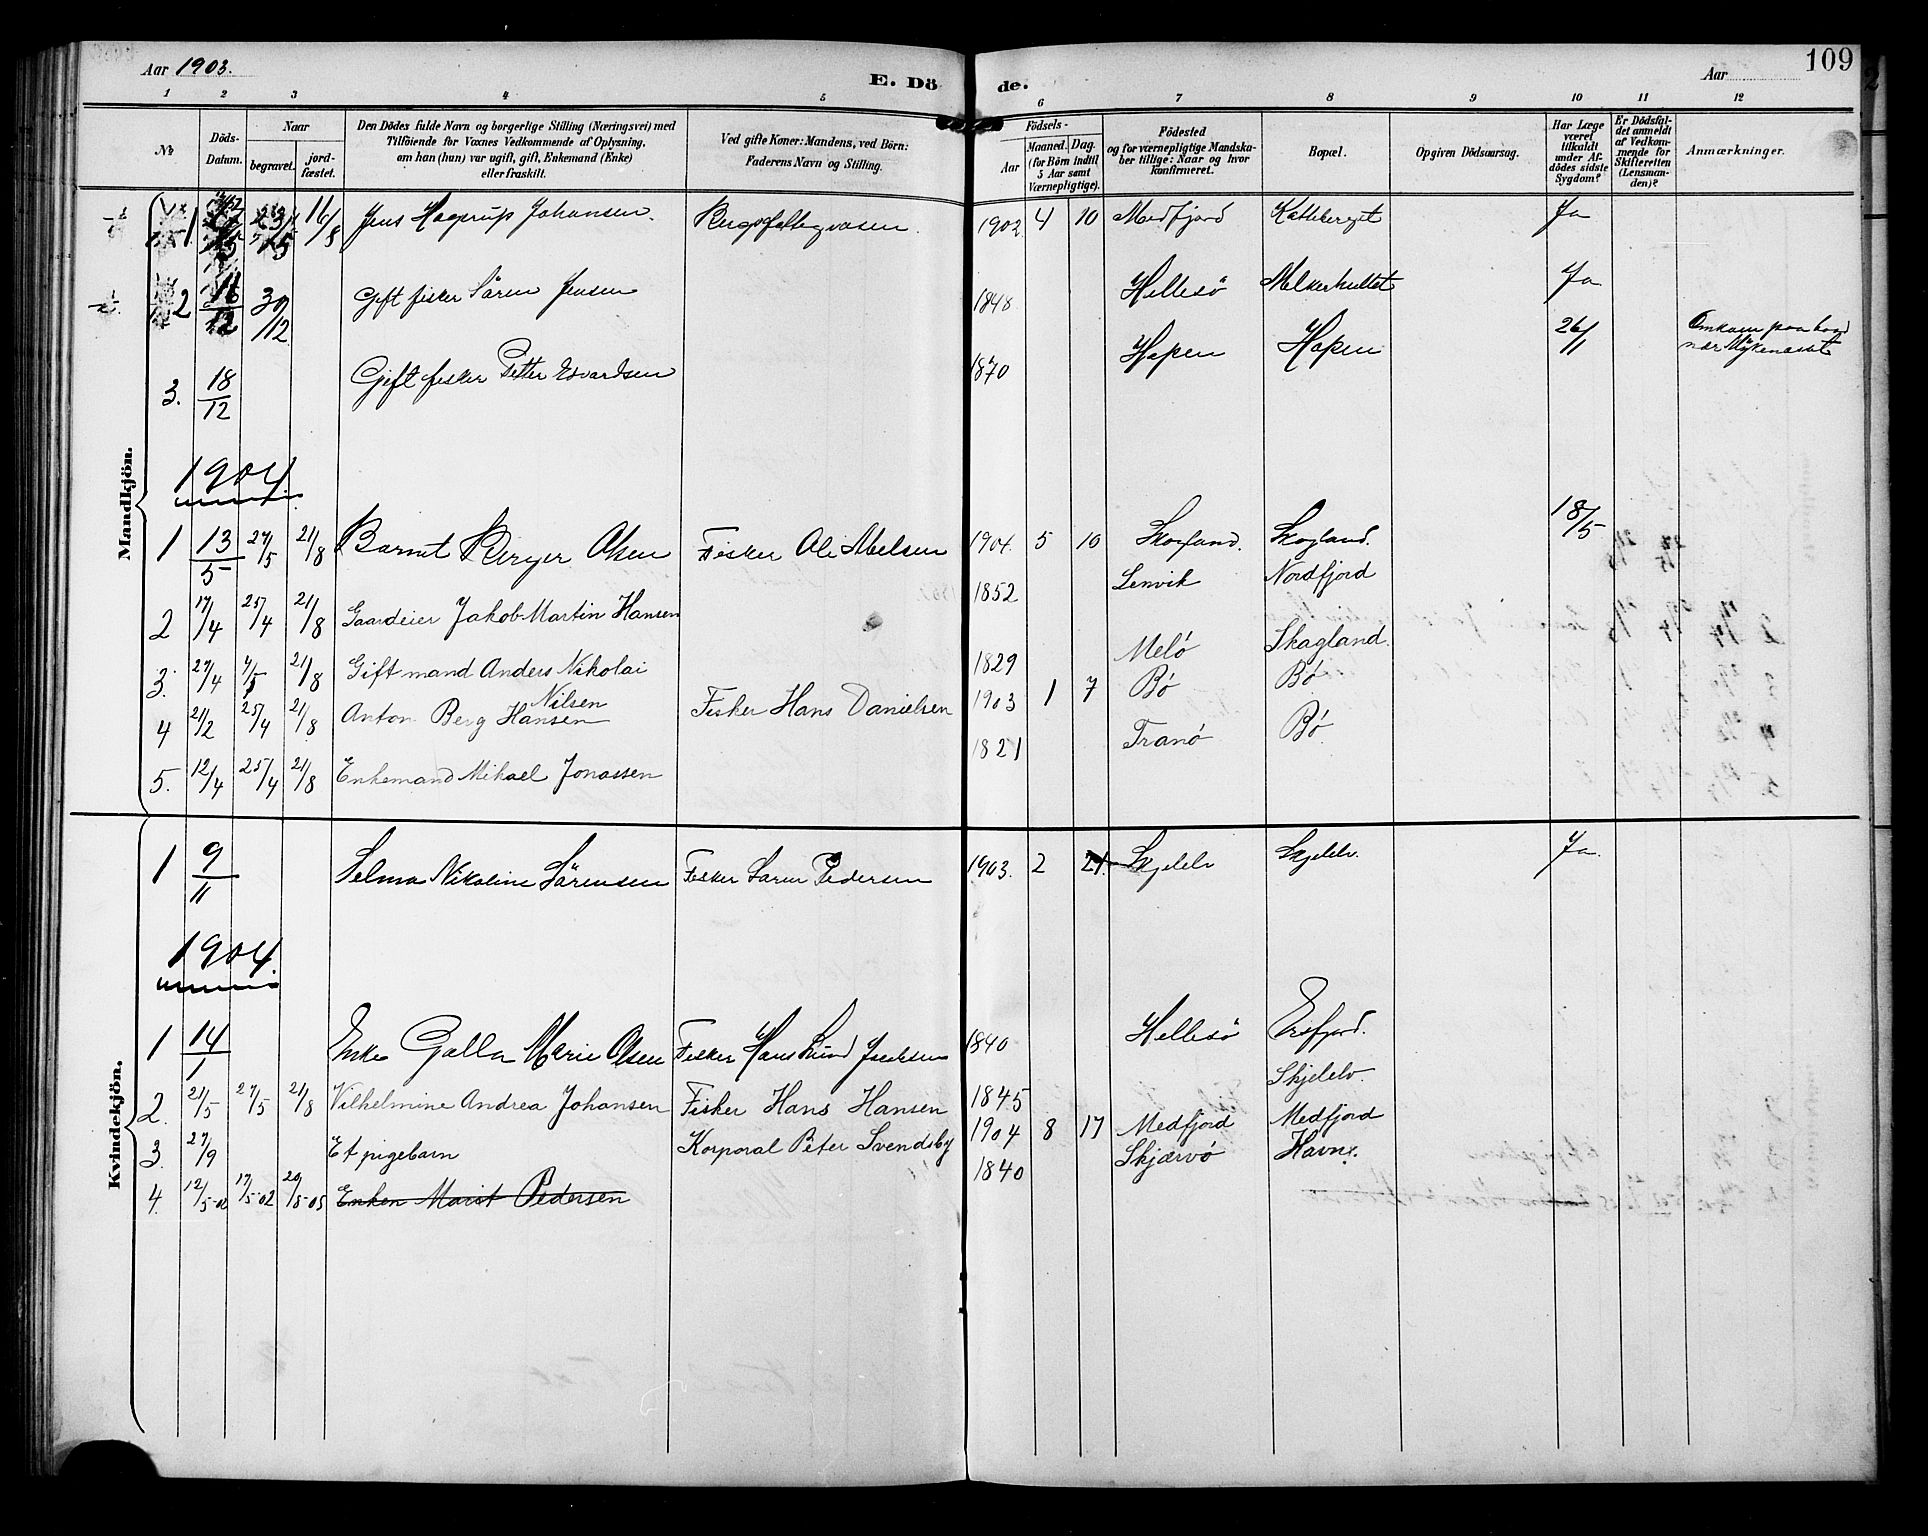 Aar 1903.
E. Dö
de.
Aar
109
1 2 3 4 5 6 7 8 9 10 11 12
№
Döds-Datum.
Naar
begravet.
jord-fæstet.
Den Dödes fulde Navn og borgerlige Stilling (Næringsvei) med
Tilföiende for Voxnes Vedkommende af Oplysning,
om han (hun) var ugift, gift, Enkemand (Enke)
eller fraskilt.
Ved gifte Koner: Mandens, ved Börn:
Faderens Navn og Stilling.
Födsels-
Aar
Maaned. Dag.
(for Börn indtil
5 Aar samt
Værnepligtige).
Födested
og for værnepligtige Mandska-
ber tillige: Naar og hvor
konfirmeret.
Bopæl.
Opgiven Dödsaarsag.
Har Læge
været
tilkaldt
under Af-
dödes sidste
Sygdom?
Er Dödsfal-
det anmeldt
af Vedkom-
mende for
Skifteretten
(Lensman-
den)?
Anmærkninger.
Mandkjön.
1 16/8 Jens Hagrup Johansen. 1902 4 10 Medfjord Ja
2 30/12 Gift fisker Sören Jensen 1848 Hellesö Ja
3. 18/12 Gift fisker Petter Edvardsen 1870 Hopen Hopen 26/1 Omkom paa
1904
1 13/5 27/5 21/8 Barnet Birger Olsen Fisker Ole Abelsen 1904. 5 10 Skogland. Skogland. 18/5
2 17/4 25/4 21/8 Gaardeier Jakob Martin Hansen 1852 Lenvik Nordfjord
3. 27/4 7/5 21/8 Gift mand Anders Nikolai Nilsen 1829 Melö Skagland.
4 21/2 25/4 21/8 Anton Berg Hansen Fisker Hans Danielsen 1903 1 7 Bø Bø
5. 12/4 25/4 21/8 Enkemand Mikael Jonassen 1821 Tranö Bø
Kvindekjön.
1 9/11 Selma Nikoline Sörensen Fisker Sören Pedersen 1903. 2 21. Skjelelv Skjelelv. Ja.
1904.
1 14/1 Enke Marie Olsen Fisker Hans Lund 1840 Hellesö Ersfjord.
2. 21/5 27/5 21/8 Vilhelmine Andrea Johansen Fisker Hans Hansen 1845 Skjelelv.
3. 27/9 Et pigebarn Korporal Peter Svendsby 1904 8 17 Medfjord Medfjord
4. 12/5-02 17/5-02 20/8-05 Enken Marit Pedersen 1840 Skjærvö Havn.